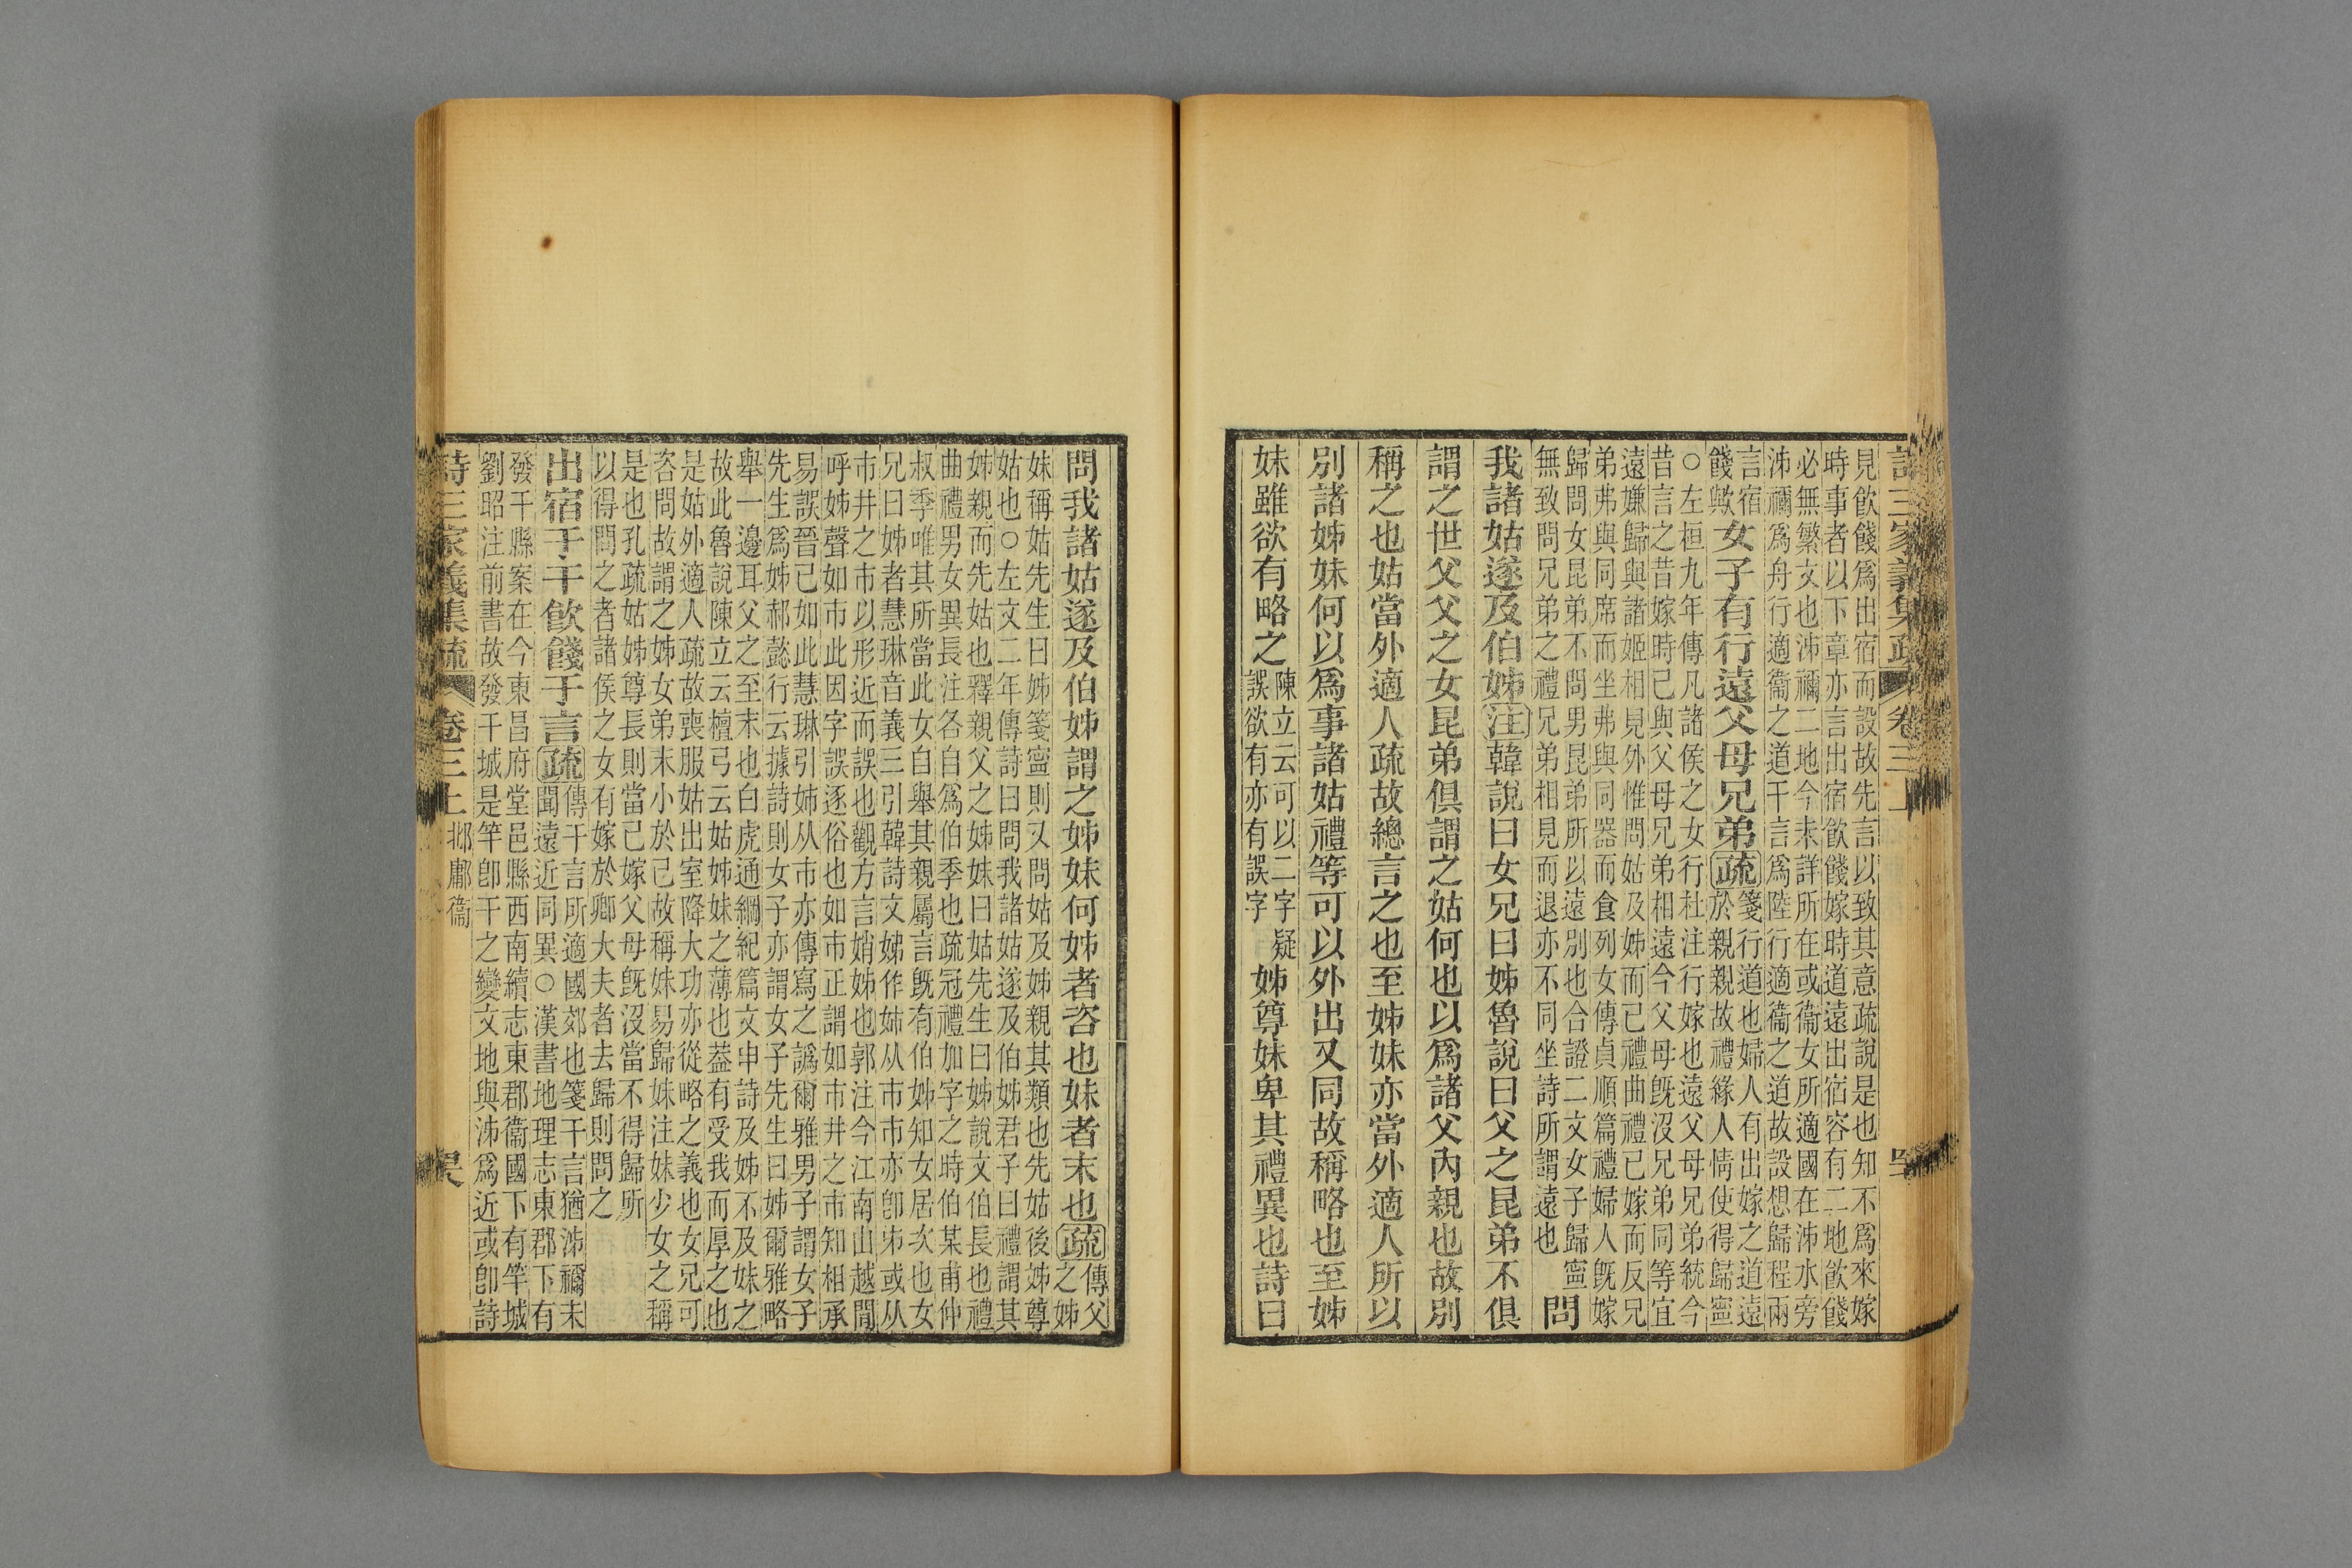 詩三家義集疏 卷三上
見飲餞爲出宿而設故先言以致其意疏說是也知不爲來嫁
時事者以下章亦言出宿飲餞嫁時道遠出宿容有二地飲餞
必無繁文也泲禰二地今未詳所在或衞女所適國在泲水旁
泲禰爲舟行適衞之道干言爲陸行適衞之道故設想歸程兩
言宿
餞歟
女子有行遠父母兄弟疏
箋行道也婦人有出嫁之道遠
於親親故禮緣人情使得歸寧
○左桓九年傳凡諸侯之女行杜注行嫁也遠父母兄弟統今
昔言之昔嫁時已與父母兄弟相遠今父母旣沒兄弟同等宜
遠嫌歸與諸姬相見外惟問姑及姊而已禮曲禮已嫁而反兄
弟弗與同席而坐弗與同器而食列女傳貞順篇禮婦人旣嫁
歸問女昆弟不問男昆弟所以遠別也合證二文女子歸寧
無致問兄弟之禮兄弟相見而退亦不同坐詩所謂遠也
問
我諸姑遂及伯姊注韓說曰女兄曰姊魯說曰父之昆弟不俱
謂之世父父之女昆弟俱謂之姑何也以爲諸父內親也故別
稱之也姑當外適人疏故總言之也至姊妹亦當外適人所以
別諸姊妹何以爲事諸姑禮等可以外出又同故稱略也至姊
妹雖欲有略之
陳立云可以二字疑
誤欲有亦有誤字
姊尊妹卑其禮異也詩曰
問我諸姑遂及伯姊謂之姊妹何姊者咨也妹者末也疏
傳父
之姊
妹稱姑先生曰姊箋寧則又問姑及姊親其類也先姑後姊尊
姑也○左文二年傳詩曰問我諸姑遂及伯姊君子曰禮謂其
姊親而先姑也釋親父之姊妹曰姑先生曰姊說文伯長也禮
曲禮男女異長注各自爲伯季也疏冠禮加字之時伯某甫仲
叔季唯其所當此女自舉其親屬言旣有伯姊知女居次也女
兄曰姊者慧琳音義三引韓詩文姊作姉从市市亦卽𠂔或从
市井之市以形近而誤也觀方言㛮姊也郭注今江南山越閒
呼姊聲如市此因字誤逐俗也如市正謂如市井之市知相承
易誤晉已如此慧琳引姉从市亦傳寫之譌爾雅男子謂女子
先生爲姊郝懿行云據詩則女子亦謂女子先生曰姊爾雅略
舉一邊耳父之至末也白虎通綱紀篇文申詩及姊不及妹之
故此魯說陳立云檀弓云姑姊妹之薄也蓋有受我而厚之也
是姑外適人疏故喪服姑出室降大功亦從略之義也女兄可
咨問故謂之姊女弟末小於己故稱妹易歸妹注妹少女之稱
是也孔疏姑姊尊長則當已嫁父母旣沒當不得歸所
以得問之者諸侯之女有嫁於卿大夫者去歸則問之
出宿于干飲餞于言疏
傳干言所適國郊也箋干言猶泲禰未
聞遠近同異○漢書地理志東郡下有
發干縣案在今東昌府堂邑縣西南續志東郡衞國下有竿城
劉昭注前書故發干城是竿卽干之變文地與泲爲近或卽詩
詩三家義集疏 卷三上 邶鄘衞